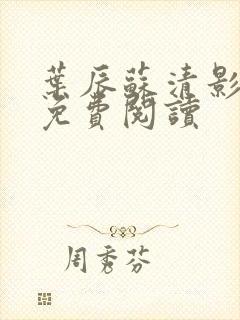 葉辰蘇清影
免費閱讀
周秀芬